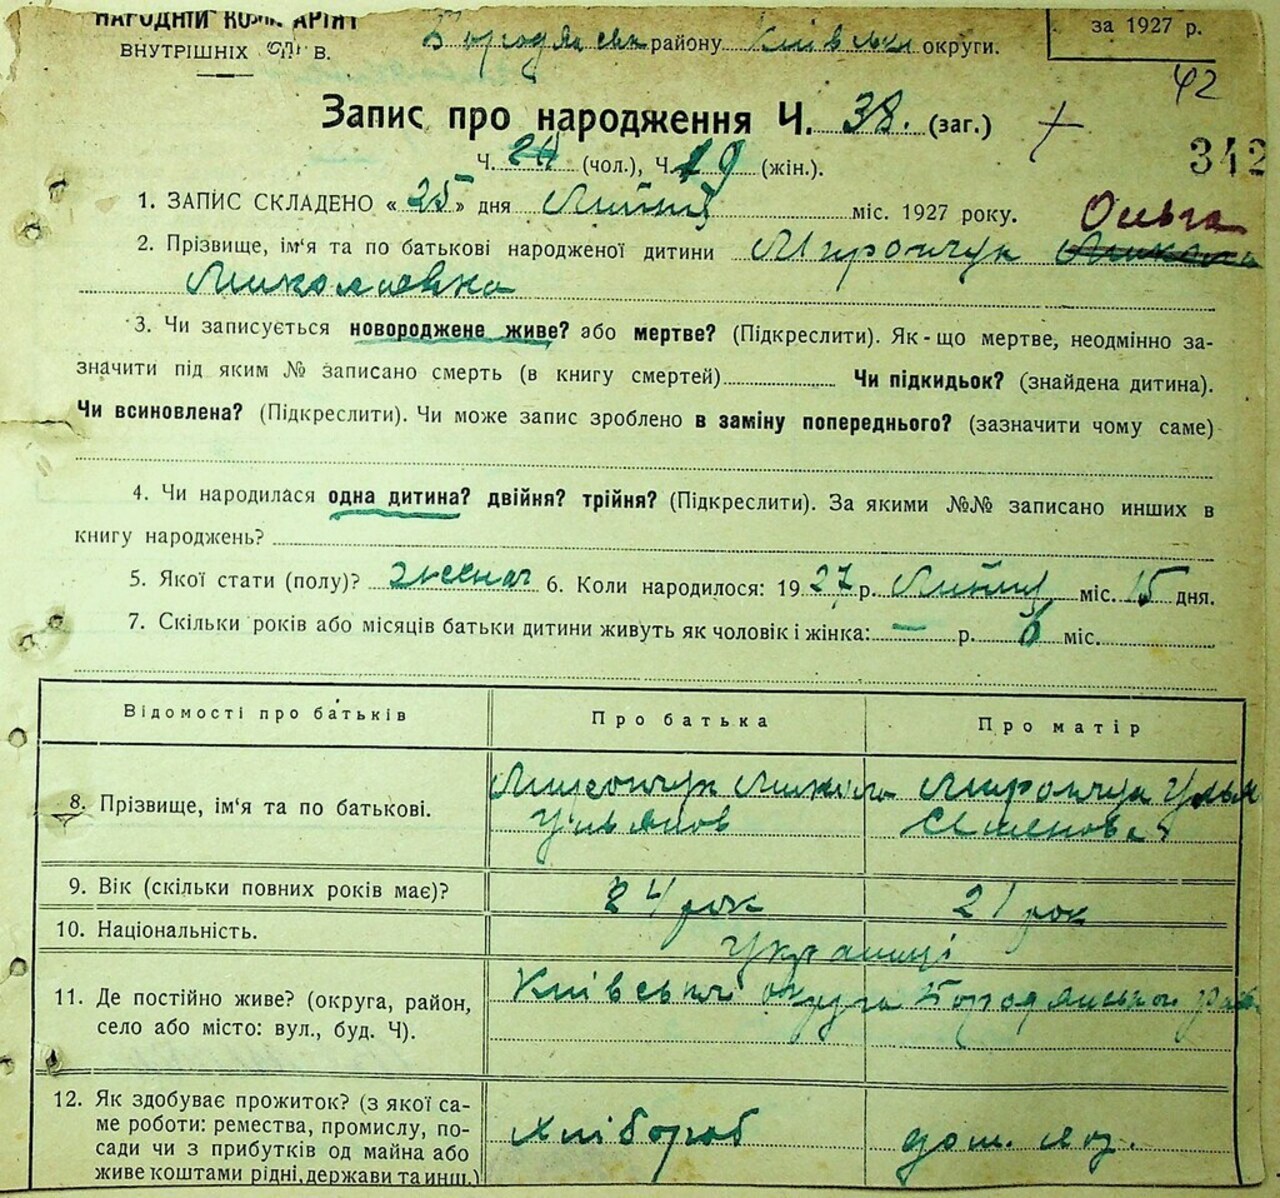 НАРОДНІЙ КОМІСАРІЯТ
ВНУТРІШНІХ СПРАВ.
Бородянськ району Київськ округи.
за 1927 р.
42
Запис про народження Ч. 38. (заг.)
342
Ч. (чол.), Ч. 19 (жін.).
1. ЗАПИС СКЛАДЕНО « 25 » дня міс. 1927 року.
Ольга
2. Прізвище, ім'я та по батькові народженої дитини Мирончук Микола
Миколаевна
3. Чи записується новороджене живе? або мертве? (Підкреслити). Як-що мертве, неодмінно за-
значити під яким № записано смерть (в книгу смертей) Чи підкидьок? (знайдена дитина).
Чи всиновлена? (Підкреслити). Чи може запис зроблено в заміну попереднього? (зазначити чому саме)
4. Чи народилася одна дитина? двійня? трійня? (Підкреслити). За якими №№ записано инших в
книгу народжень?
5. Якої стати (полу)? женач 6. Коли народилося: 1927 р. міс. 15 дня.
7. Скільки років або місяців батьки дитини живуть як чоловік і жінка: — р. 6 міс.
Відомості про батьків Про батька Про матір
8. Прізвище, ім'я та по батькові. Мирончук Микола Мирончук Ульян
Ульянов Семенова
9. Вік (скільки повних років має)? 24 рок 21 рок
10. Національність. Українці
11. Де постійно живе? (округа, район,
село або місто: вул., буд. Ч).
Київської округа Бородянського рай
12. Як здобуває прожиток? (з якої са-
ме роботи: ремества, промислу, по-
сади чи з прибутків од майна або
живе коштами рідні, держави та инш.)
хлібороб дом. яз.